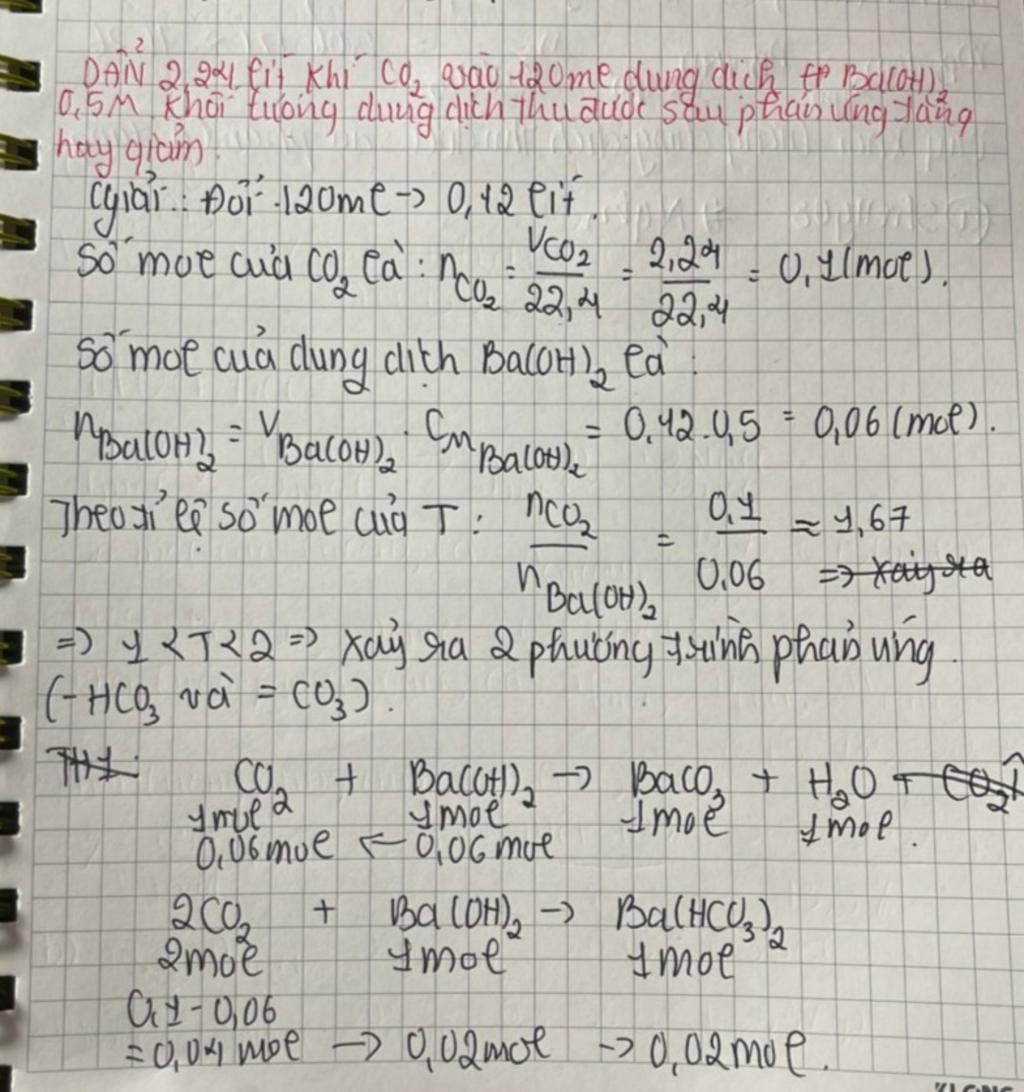 DẪN 2,24 lít khí CO2 vào 120ml dung dịch Ba(OH)2
0,5M khối lượng dung dịch thu được sau phản ứng tăng
hay giảm.
Giải: Đổi 120ml -> 0,12 lít.
Số mol của CO2 là: nCO2 = VCO2/22,4 = 2,24/22,4 = 0,1 (mol).
Số mol của dung dịch Ba(OH)2 là:
nBa(OH)2 = VBa(OH)2 . CM Ba(OH)2 = 0,12.0,5 = 0,06 (mol).
Theo tỉ lệ số mol của T: nCO2/nBa(OH)2 = 0,1/0,06 ≈ 1,67
=> xảy ra
=> 1 < T < 2 => xảy ra 2 phương trình phản ứng.
(-HCO3 và =CO3).
TH1:
CO2 + Ba(OH)2 -> BaCO3 + H2O + CO2↑
1mol 1mol 1mol 1mol.
0,06mol <- 0,06mol
2CO2 + Ba(OH)2 -> Ba(HCO3)2
2mol 1mol 1mol
0,1-0,06
=0,04mol -> 0,02mol -> 0,02mol.